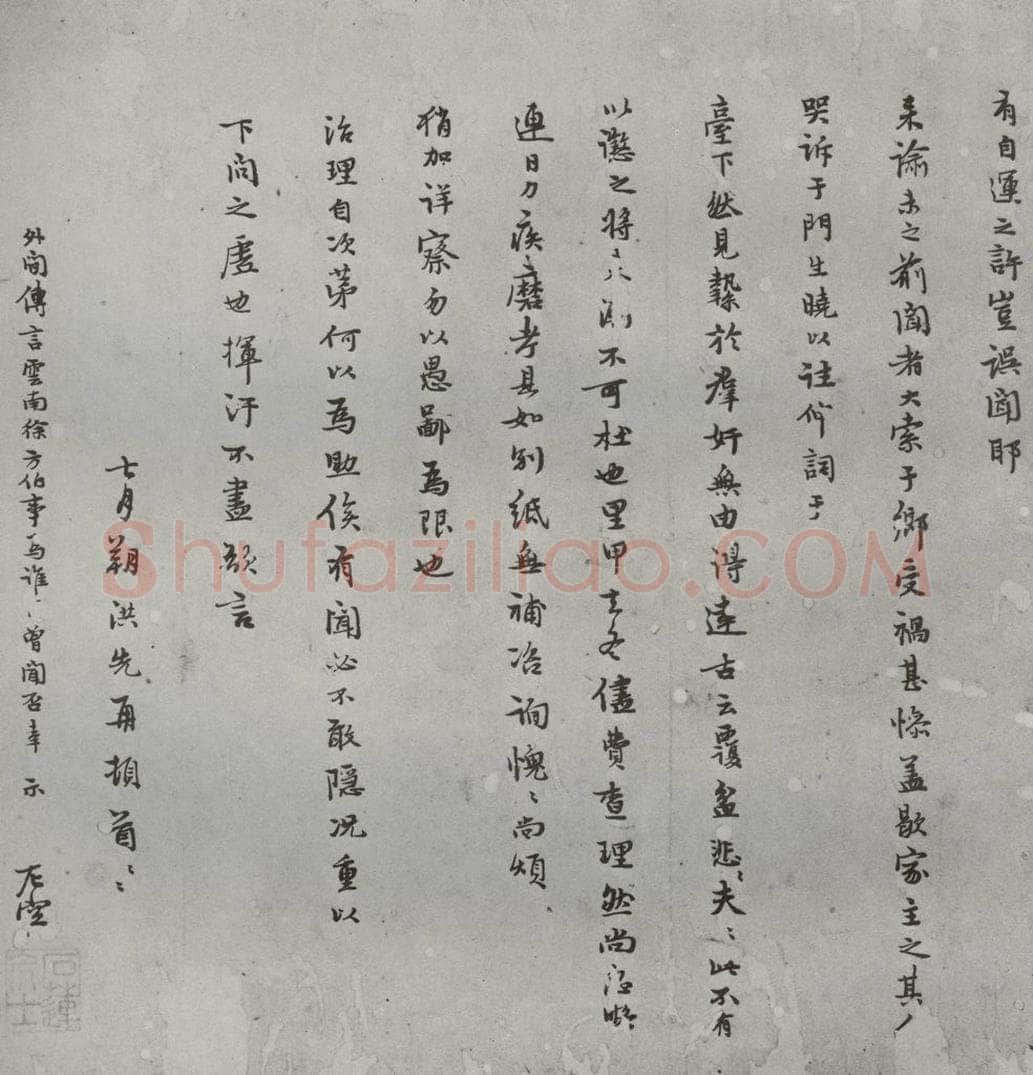 有自運之許豈誤聞耶
来諭未之前聞者大索于鄉受禍甚慘盖歇家主之其人
哭訴于門生曉以註何詞于
臺下然見縶於羣奸無由得達古云覆盆悲悲夫夫此不有
以懲之將來不可杜也里甲去冬儘費查理然尚
連日力疾磨考具如别紙無補咨詢愧愧尚煩
稍加详察勿以愚鄙為限也
治理自次第何以為助俟有聞必不敢隠况重以
下問之虚也揮汗不盡欲言
七月朔洪先再頓首
外间傳言雲南徐方伯事為誰曾聞否幸示
左空
石蓮
Shufaziliao.COM